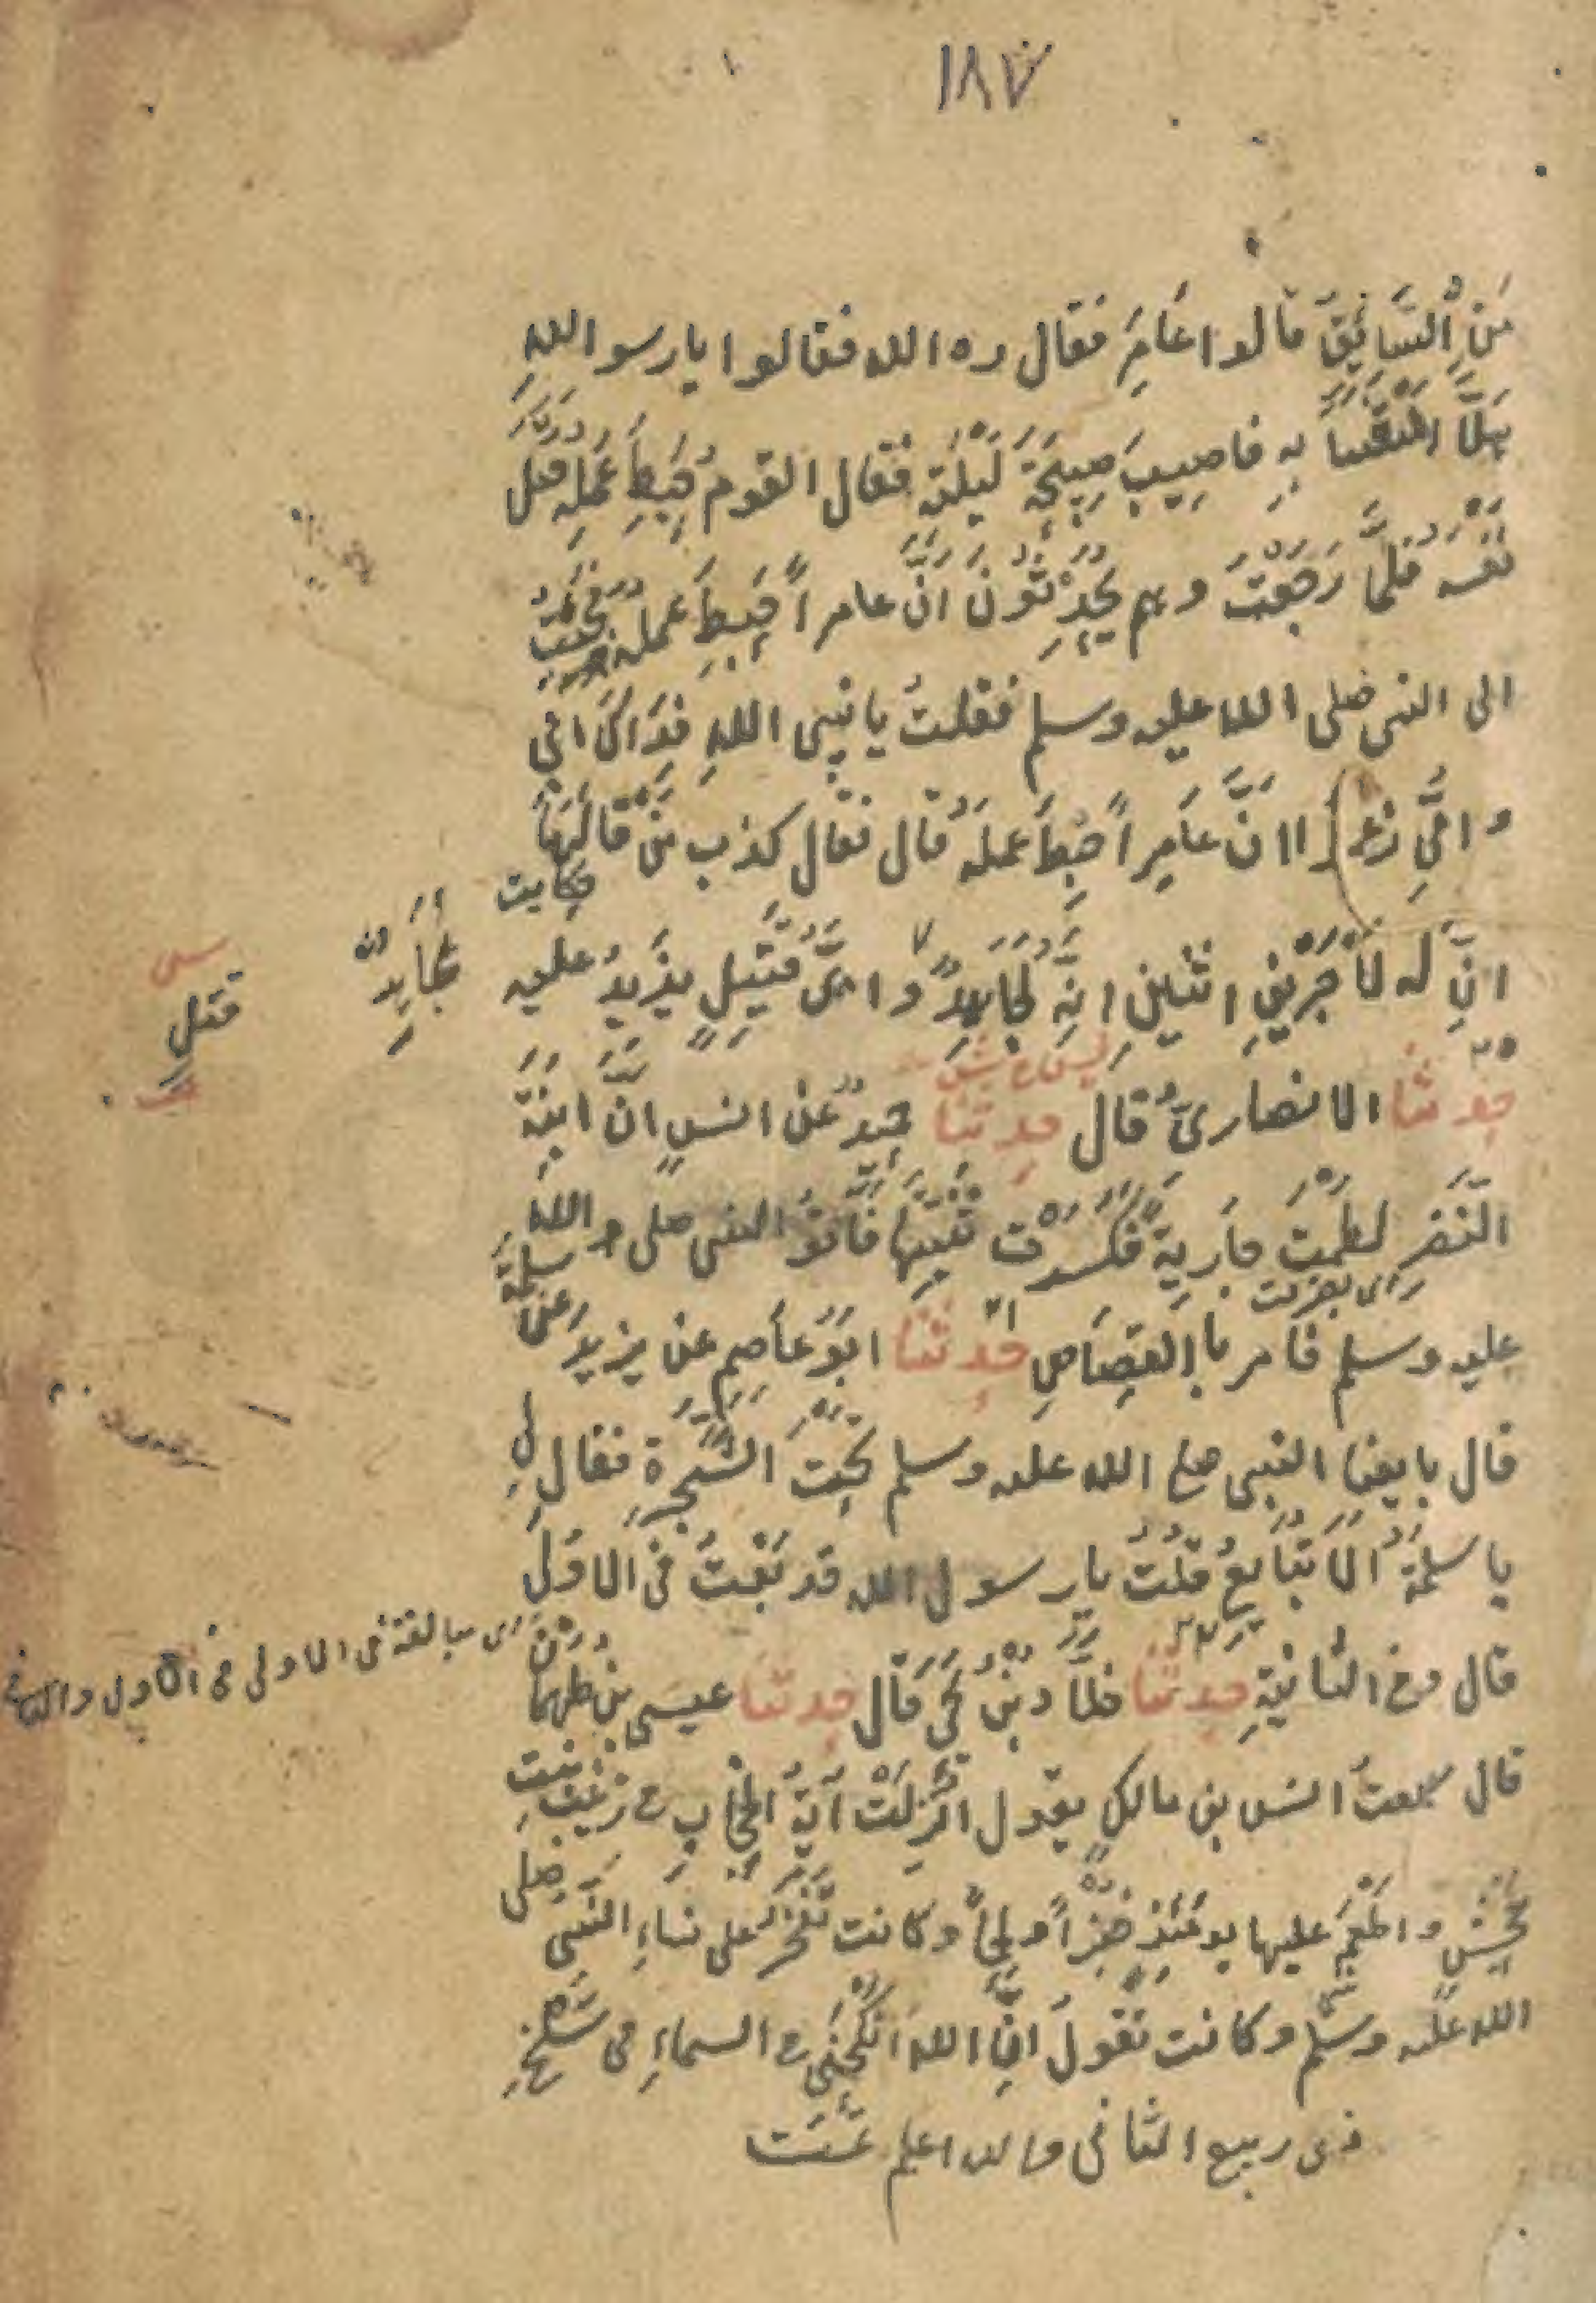 ١٨٧
مَنِ السَّائِقُ قالوا عَامِرٌ فقال ره الله فقالوا يا رسو الله
هَلَّا امْتَعْتَنَا بِهِ فاصِيبَ صَبِيحَةَ لَيْلَتِه فقال القومُ حَبِطَ عَمَلِه قتل
نَفْسَه فَلَمَّا رَجَعْتُ وهم يَحَدِّثُونَ اَنَّ عامراً حَبِطَ عمله فَجِئتُ
الى النبى صلى الله عليه وسلم فقلتُ يا نبى اللهِ فِدَاكَ ابى
وامّى زعموا انَّ عَامِراً حَبِطَ عمله قال فقال كذب من قَالَهَا
انّ له لَاَجْرَيْنِ اثنين انّه لَجَاهِدٌ وايُّ قَتِيلٍ يزيدُ عليه
مُجَاهِدٌ
قتلٍ
حدثنا الانصارىُّ قال حدثنا حميدٌ عن انسٍ انَّ ابنَةَ
النَّضرِ لَطَمَتْ جَارِيَةً فكَسَرَت ثَنِيَّتَهَا فَاَتَوُا النبى صلى الله
عليه وسلم فامر با القِصَاصِ حدثنا ابُو عَاصِمٍ عن يزيدَ عن سلمة
قال بايعنا النبى صلم الله عليه وسلم تحتَ الشَّجَرَةِ فقال لِى
يا سلمةُ اَلَا تُبَايِعُ قلتُ يا رسول الله قد بَايَعْتُ فى الاوّلِ
قال وفى الثانيةِ حدثنا خلّادُ بْنُ يَحْىٰ قَال حدثنا عيسى بنُ طَهْمَانَ
اى مبالغة فى الاولى فى الاول والثانى
قال سمعتُ انس بن مالكٍ يقول انزِلَتْ آيَةُ الحِجَابِ فى زينب بنتِ
جَحْشٍ واَطْعَمَ عليها يومَئِذٍ خُبْزاً ولَحْماً وكانت تَفْخَرُ على نساءِ النبىّ صلى
الله عليه وسلم وكانت تقولُ انَّ الله اَنْكَحَنِى فى السماءِ فى سَلْخِ
ذى ربيع الثانى والله اعلم تَمَّت